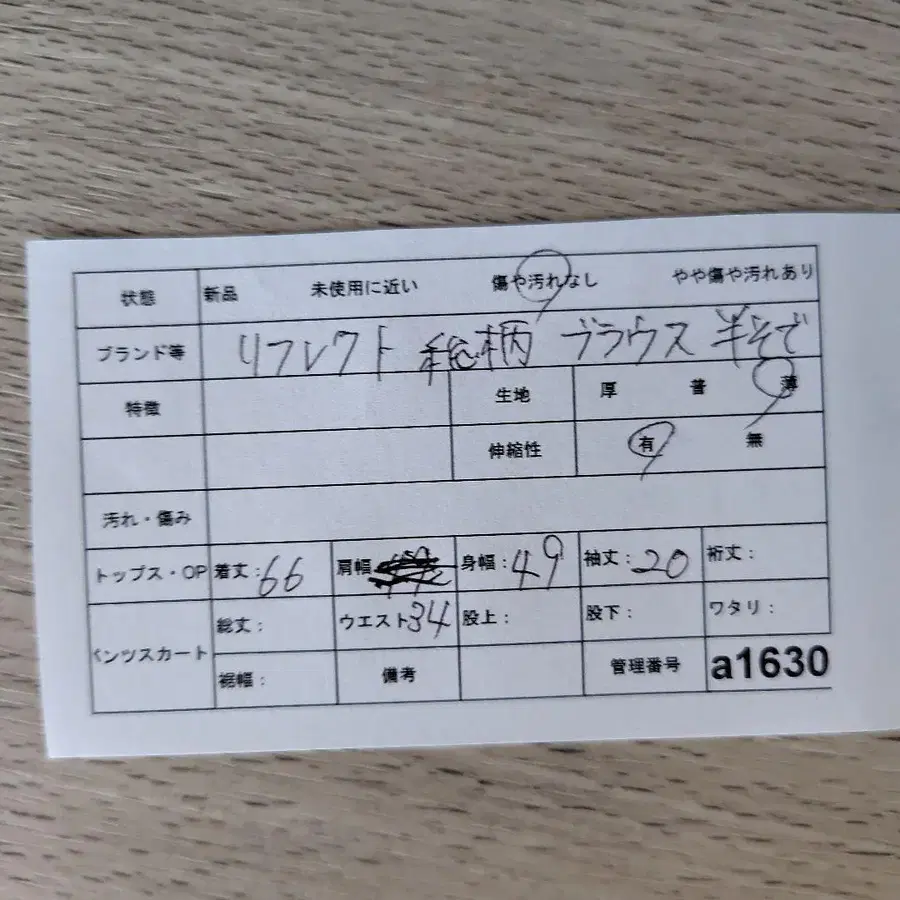 状態 新品 未使用に近い 傷や汚れなし やや傷や汚れあり
ブランド等 リフレクト 総柄 ブラウス 半そで
特徴 生地 厚 普 薄
伸縮性 有 無
汚れ・傷み
トップス・OP 着丈:66 肩幅 身幅:49 袖丈:20 裄丈:
パンツスカート 総丈: ウエスト34 股上: 股下: ワタリ:
裾幅: 備考 管理番号 a1630